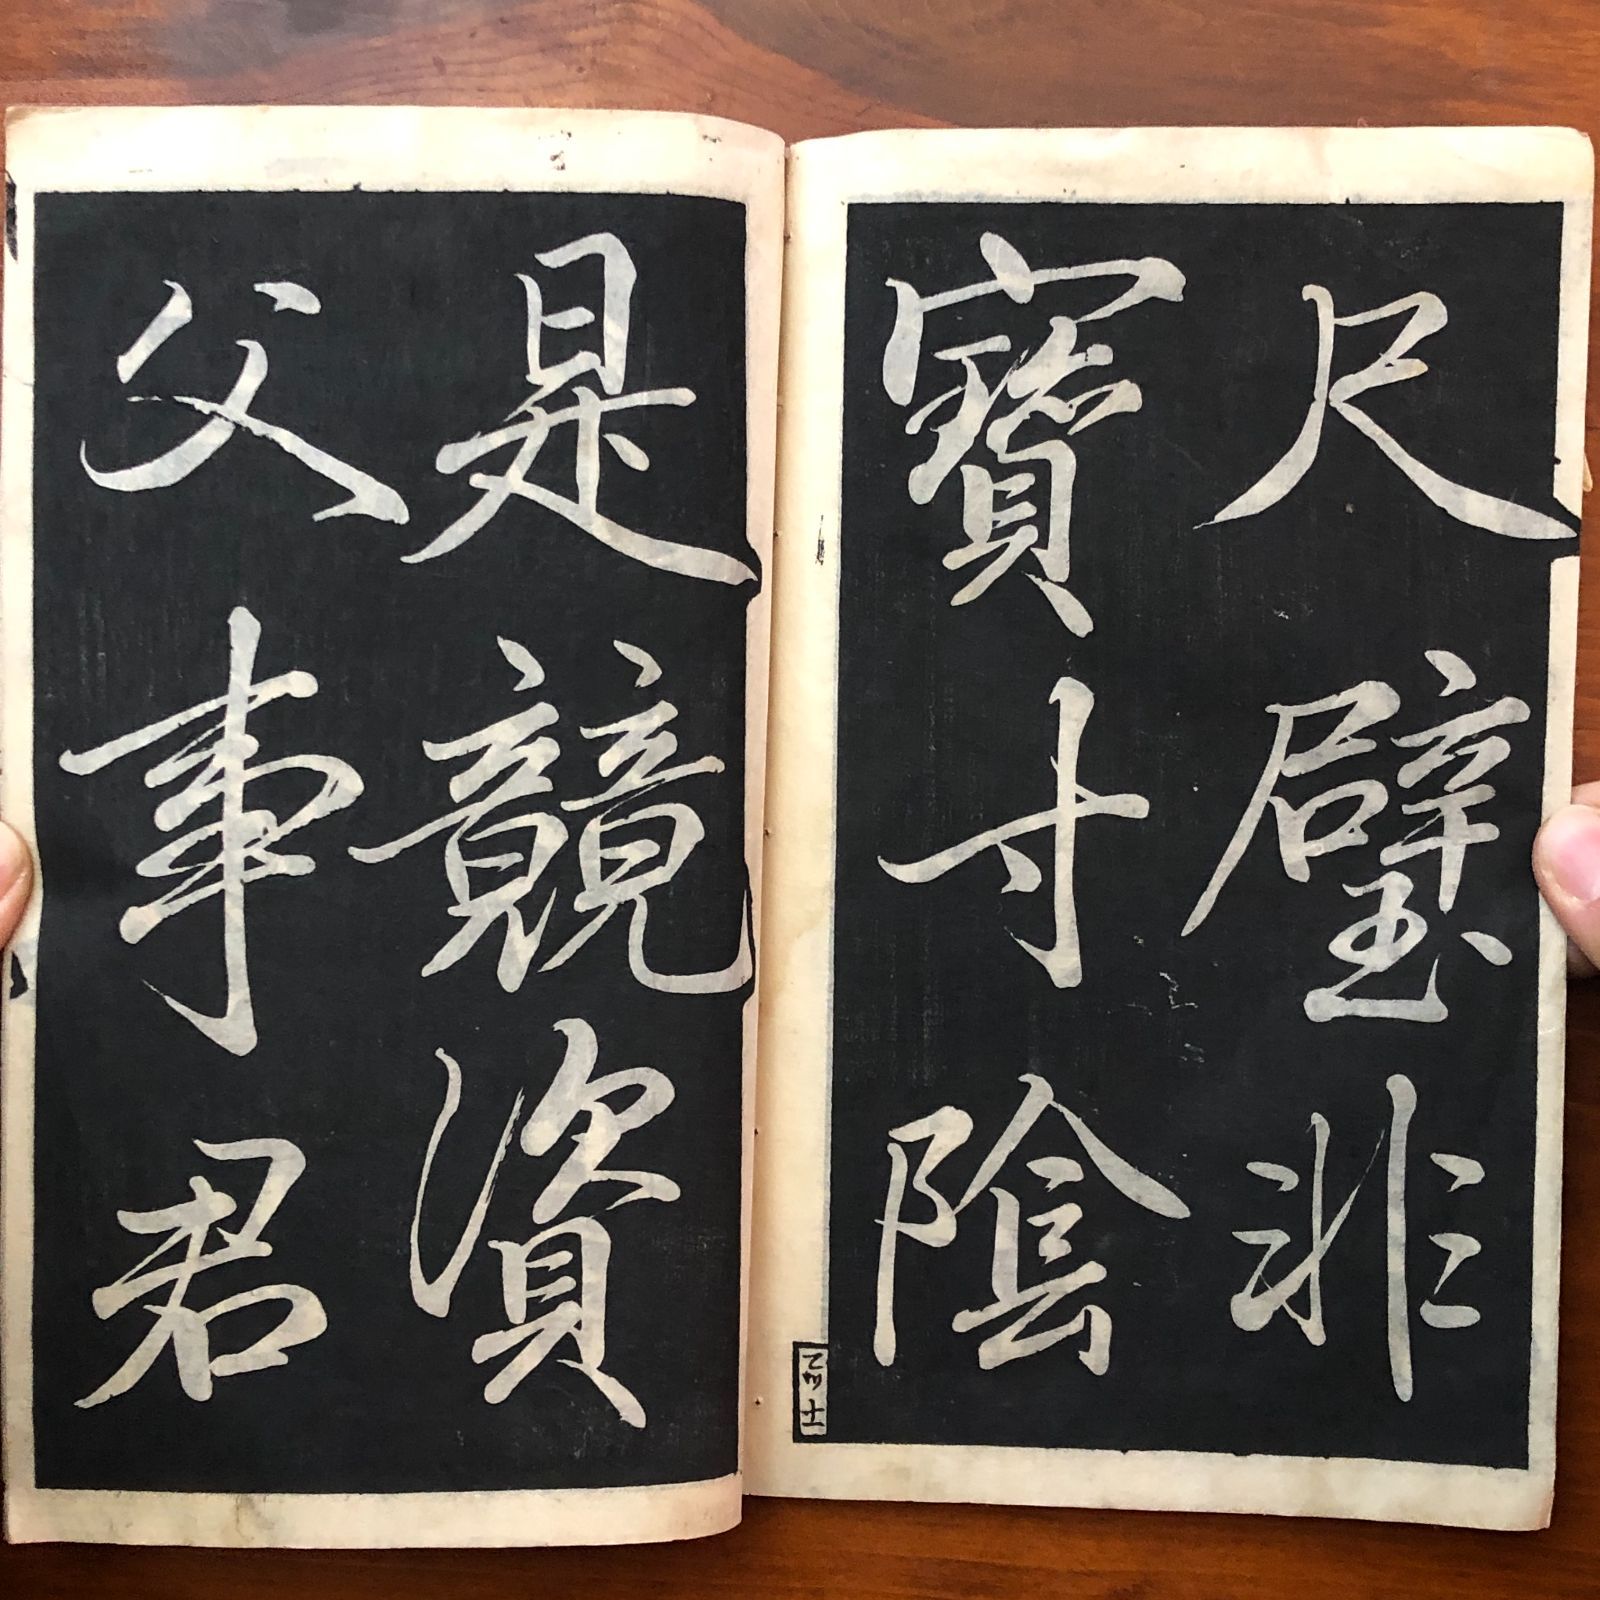 尺璧非
寶寸陰
是競資
父事君